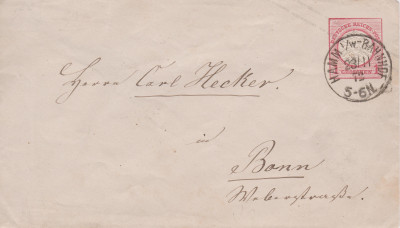 HAMM i/W-BAHNHOF
23 11
72
5-6N.
Herrn Carl Hecker.
in
Bonn
Weberstraße.